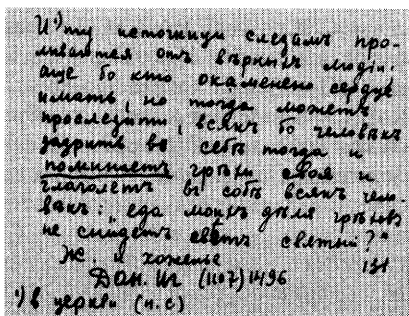 И ¹) ту источници слезамъ про-
ливаются отъ вѣрныхъ людіи,
аще бо кто окаменено сердце
имать, но тогда можетъ
прослезити, всякъ бо человѣкъ
зазритъ въ себѣ тогда и
поминаетъ грѣхи своя и
глаголетъ въ собѣ всякъ чело-
вѣкъ: „еда моихъ дѣля грѣховъ
не снидетъ свѣтъ святый?"
Ж. и хоженье 131
Дан. Иг (1107) 1496
¹) в церкви (н. с)